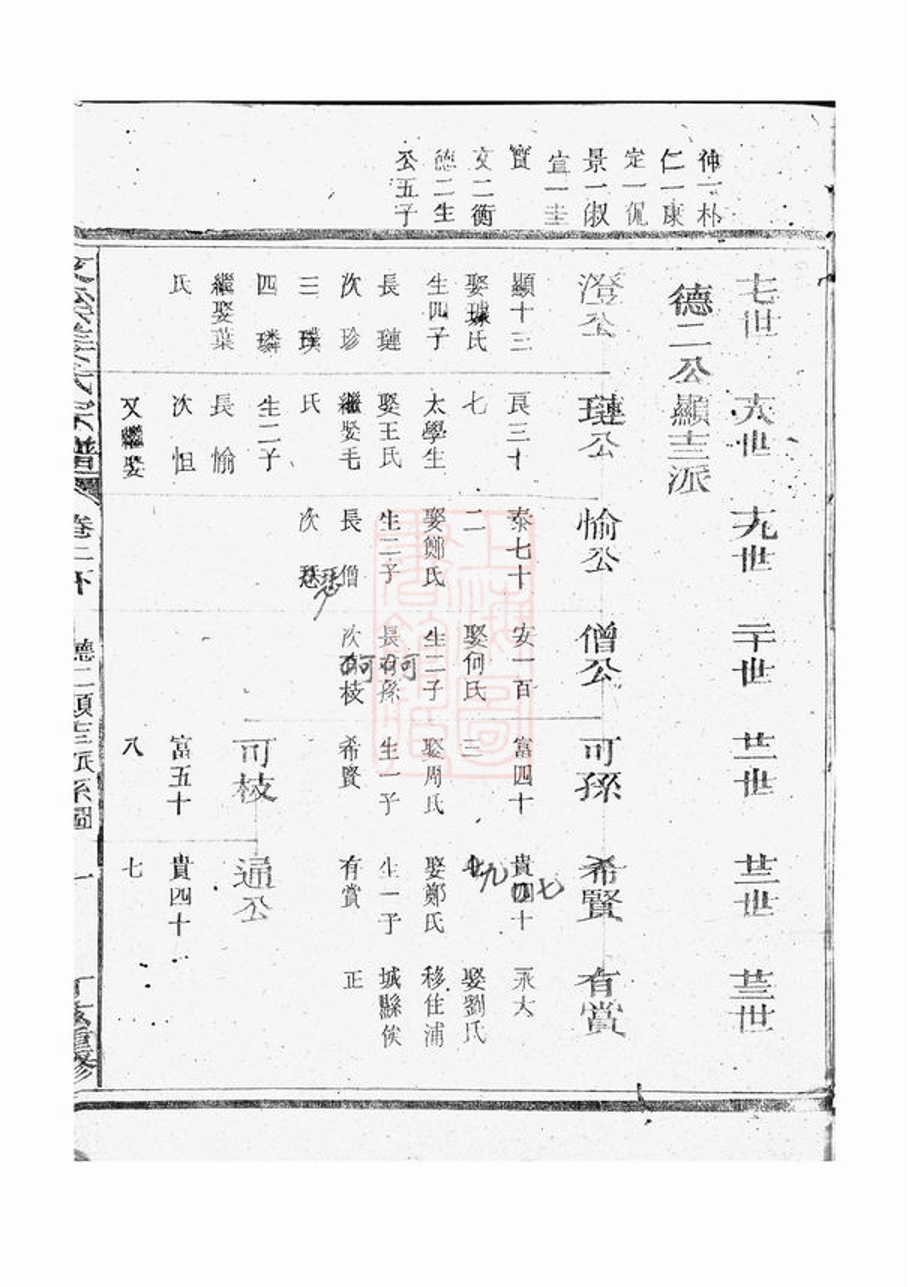 神一朴
仁一康
定一侃
景一俶
宣一圭
寳
文二衡
德二生
公五子
七世
德二公顯十三派
澄公
顯十三
娶璩氏
生四子
長璉
次珍
三璞
四璘
繼娶葉
氏
十八世
璉公
良三十
七
太學生
娶王氏
繼娶毛
氏
生二子
長愉
次怛
又繼娶
十九世
愉公
泰七十
二
娶鄭氏
生二子
長僧
次
二十世
僧公
安一百
娶何氏
生二子
長可孫
次可枝
廿一世
可孫
富四十
三
娶周氏
生一子
希賢
可枝
富五十
八
廿二世
希賢
貴四十
七
九
娶鄭氏
生一子
有賞
通公
貴四十
七
廿三世
有賞
永大
娶劉氏
移住浦
城縣俟
正
氏宗譜
卷二下
德二顯十三派系圖
一
丁亥重修
上海圖
書館藏